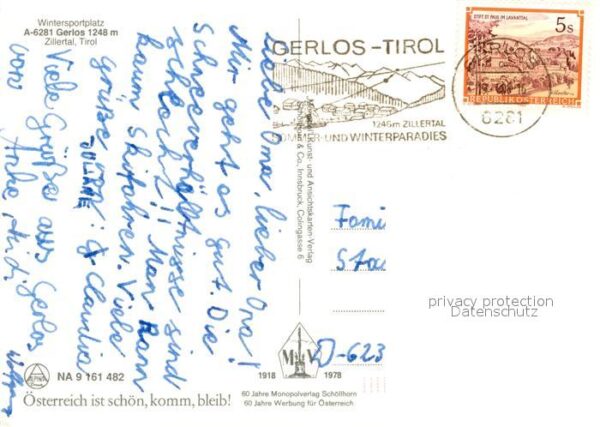 Wintersportplatz
A-6281 Gerlos 1248 m
Zillertal, Tirol
Liebe Oma, lieber Opa!
Mir geht es gut. Die
Schneeverhältnisse sind
schlecht!! Man kann
kaum Skifahren. Viele
Grüße von: & Claudia
JULIANE
Viele Grüße aus Gerlos
von Anke, Heidi,
GERLOS-TIROL
1246m ZILLERTAL
SOMMER-UND WINTERPARADIES
STIFT ST. PAUL IM LAVANTTAL
5s
REPUBLIK ÖSTERREICH
GERLOS
6281
Kunst- und Ansichtskarten-Verlag
& Co., Innsbruck, Colingasse 6
Fami
Stau
D-623
privacy protection
Datenschutz
MV
1918 1978
60 Jahre Monopolverlag Schöllhorn
60 Jahre Werbung für Österreich.
NA 9 161 482
Österreich ist schön, komm, bleib!